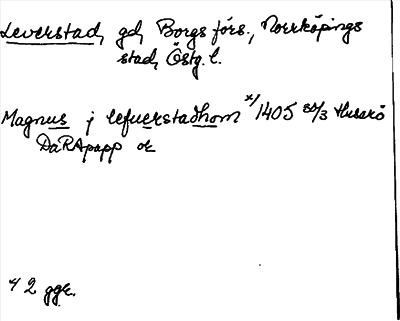 Leverstad, gd, Borgs förs., Norrköpings
stad, Östg. l.
Magnus j lefuerstadhom x/ 1405 30/3 Husarö
DaRApapp or
x/ 2 ggr.